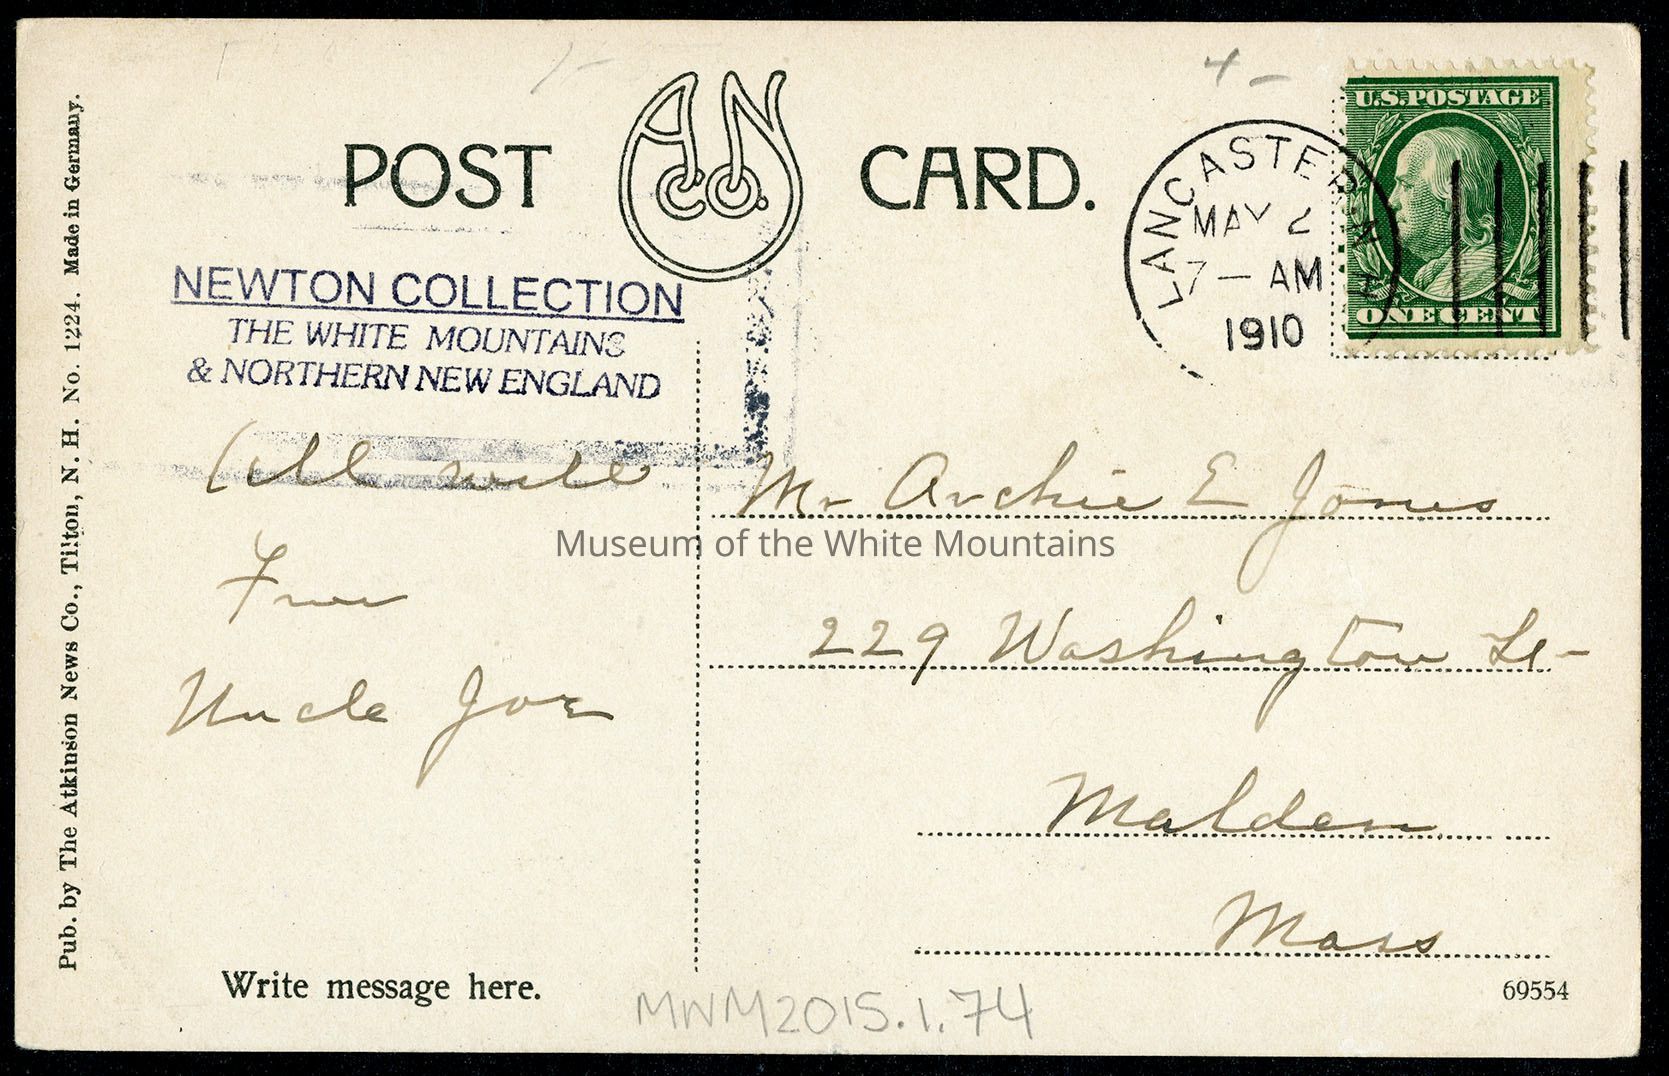 POST CARD.
A N Co.
4 –
U.S. POSTAGE
ONE CENT
LANCASTER N H
MAY 2
7 – AM
1910
NEWTON COLLECTION
THE WHITE MOUNTAINS
& NORTHERN NEW ENGLAND
All well
From
Uncle Joe
Mr Archie E Jones
229 Washington St –
Malden
Mass
Museum of the White Mountains
Pub. by The Atkinson News Co., Tilton, N. H. No. 1224. Made in Germany.
Write message here.
MWM2015.1.74
69554